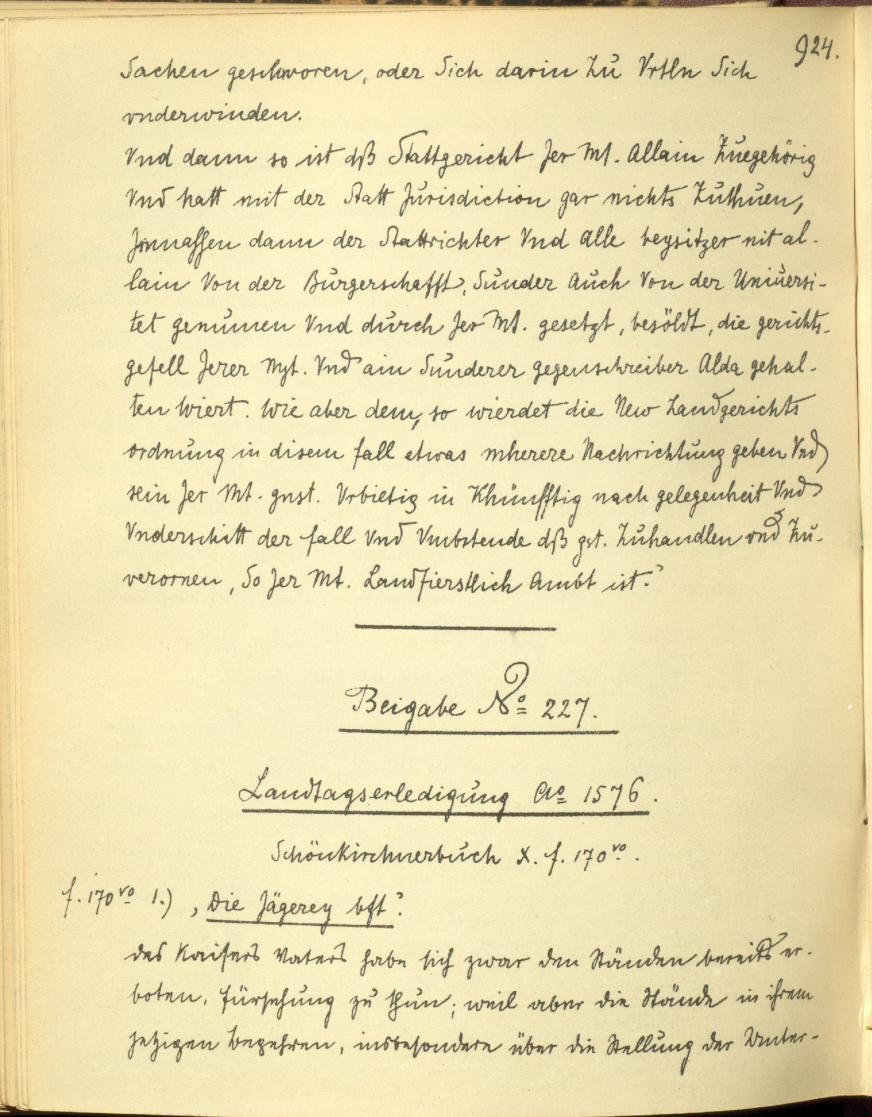 924.
Sachen geschworen, oder Sich darin Zu Vrtln Sich
vnderwinden.
Vnd dann so ist dß Stattgericht Jer Mt. Allain Zuegehörig
Vnd hatt mit der Statt Jurisdiction gar nichts Zuthuen,
Jnmassen dann der Stattrichter Vnd Alle beysitzer nit al-
lain Von der Bürgerschafft, Sunder Auch Von der Uniuersi-
tet genumen Vnd durch Jer Mt. gesetzt, besöldt, die gerichts-
gefell Jerer Myt. Vnd ain Sunderer gegenschreiber Alda gehal-
ten Wiert. Wie aber dem, so wierdet die New Landgerichts
ordnung in disem fall etwas mherere Nachrichtung geben Vnd
sein Jer Mt. gnst. Vrbietig in Khünfftig nach gelegenheit Vnd
Vnderschitt der fall Vnd Vmbstende dß gst. Zuhandlen vnd Zu-
verornen, So Jer Mt. Landfierstlich Ambt ist."
Beigabe No 227.
Landtagserledigung Ao 1576.
Schönkirchnerbuch X. f. 170vo.
f. 170vo 1.) „Die Jägerey bft".
des Kaisers Vaters habe sich zwar den Ständen bereits er-
boten, fürsehung zu thun; weil aber die Stände in ihrem
jetzigen begehren, insbesondere über die Stellung der Unter-